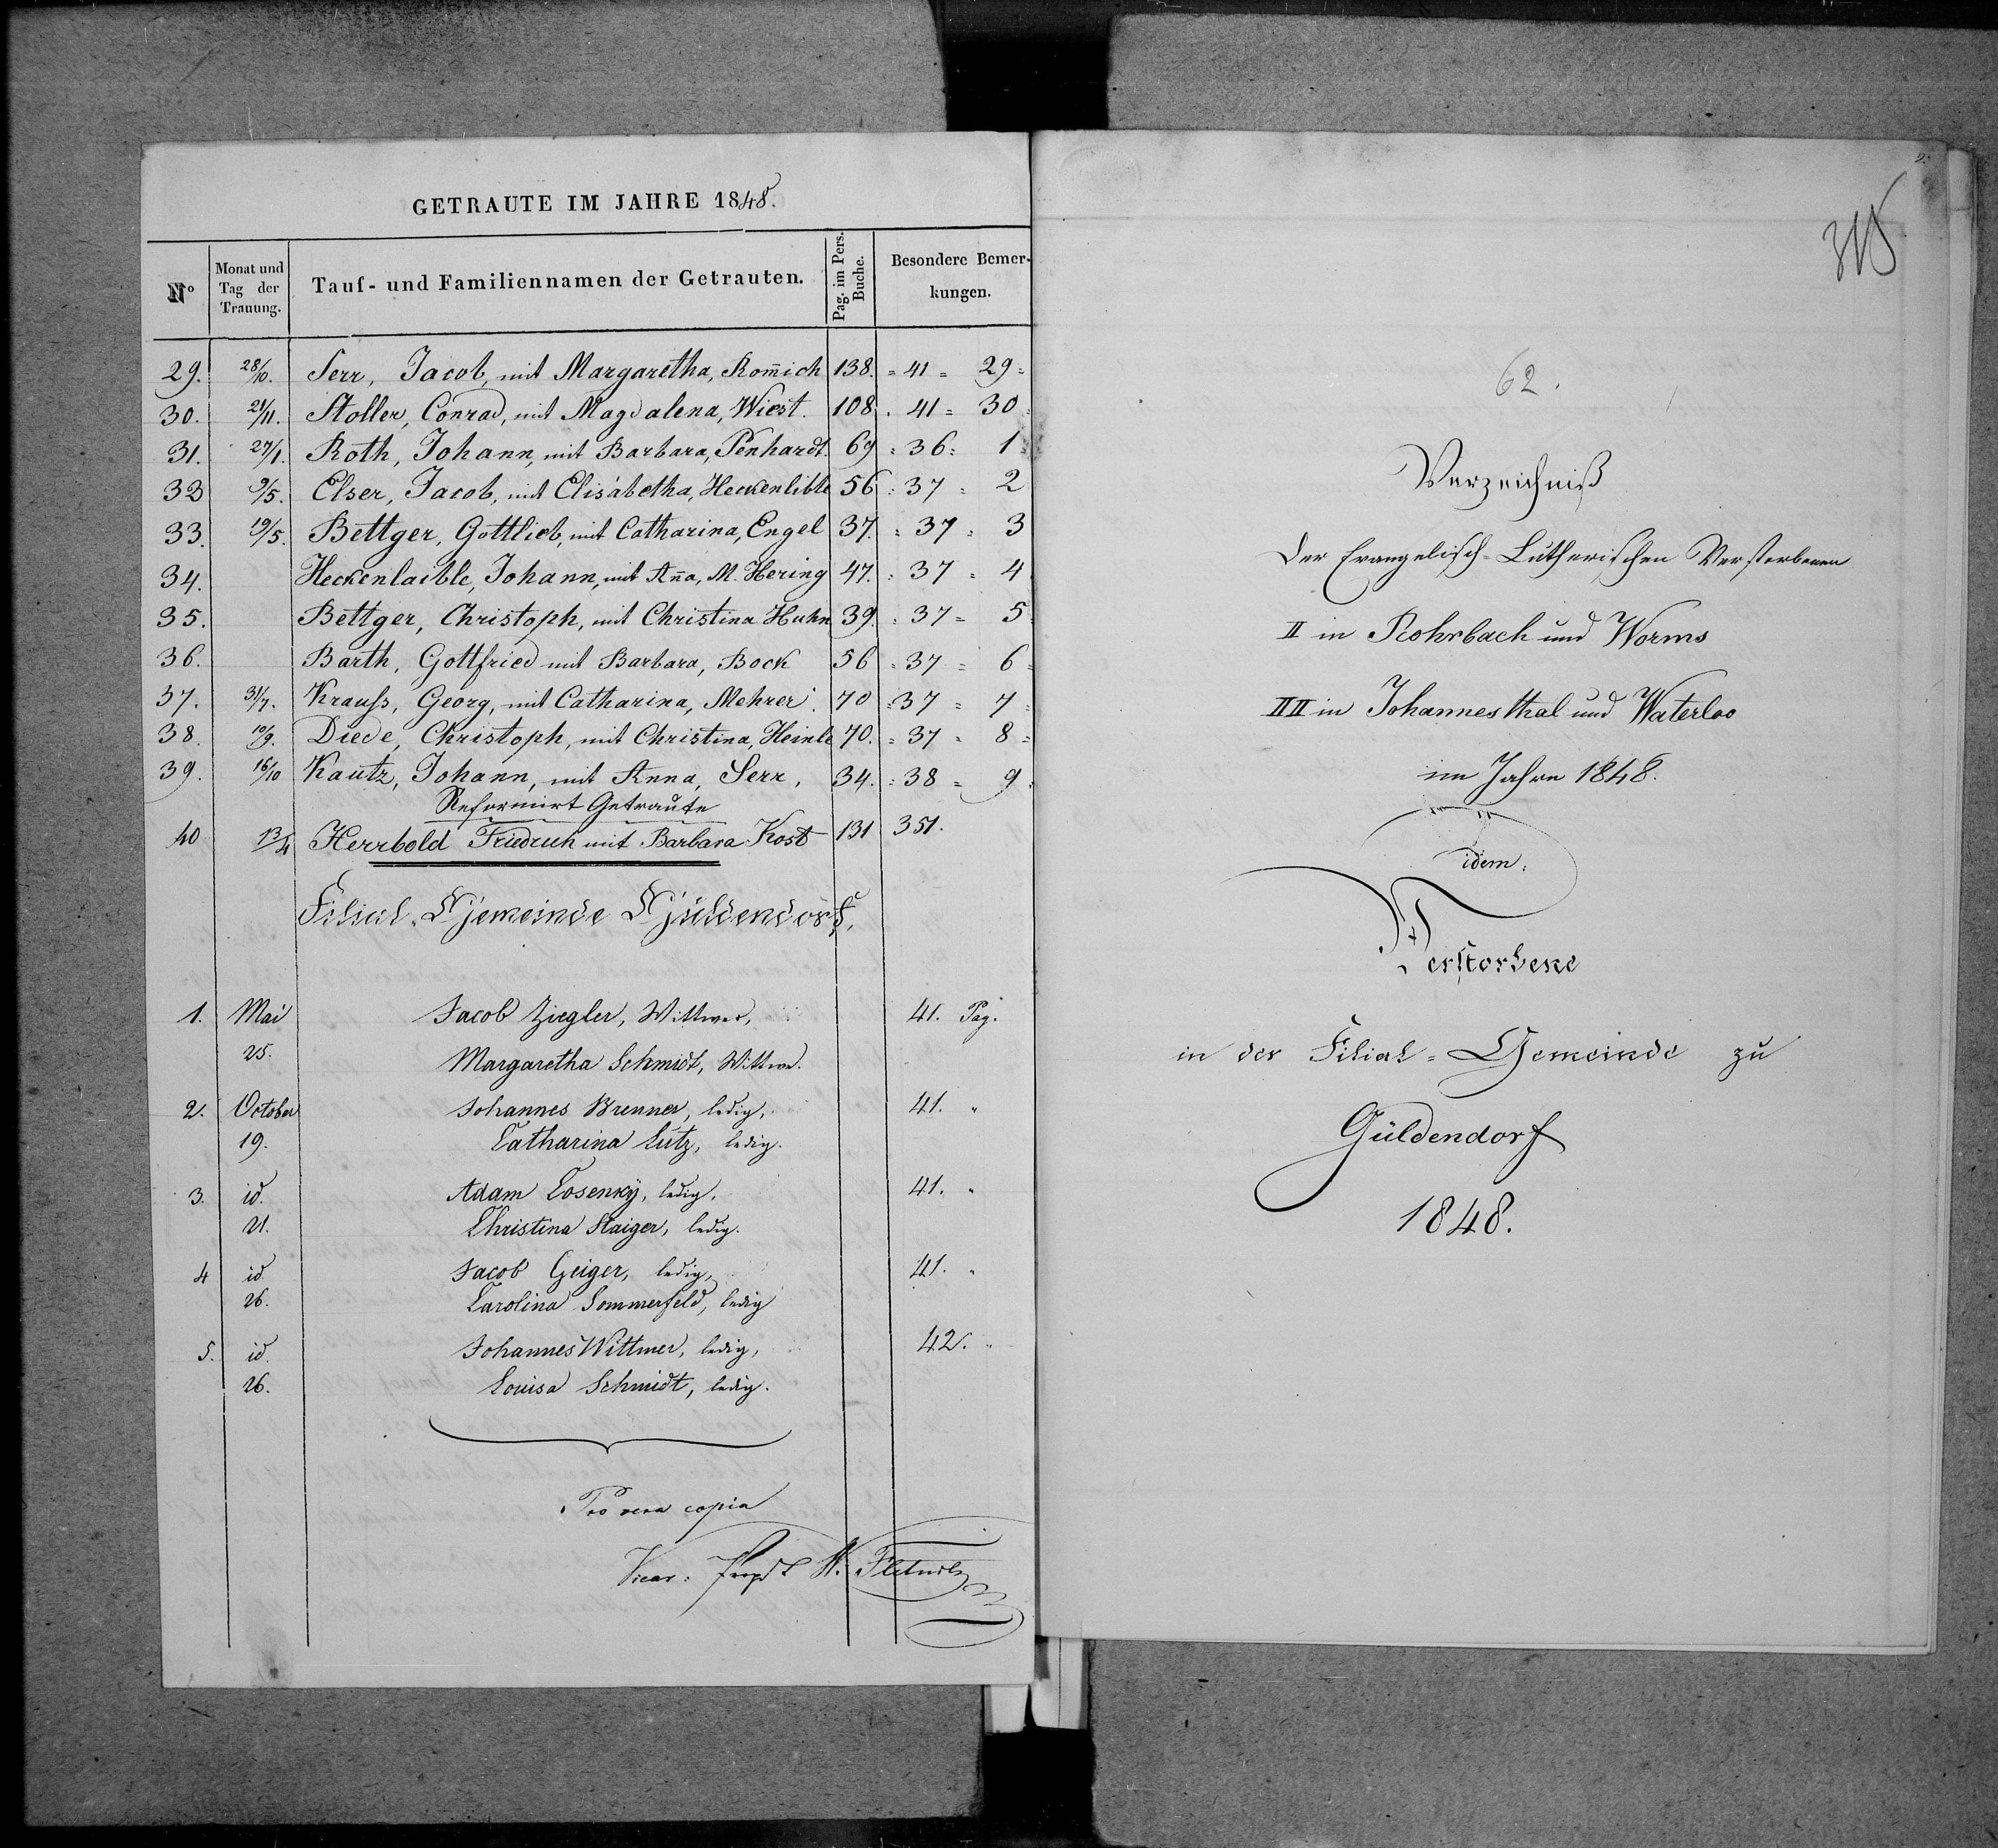 GETRAUTE IM JAHRE 1848.
Nº Monat und Tag der Trauung. Tauf- und Familiennamen der Getrauten. Pag. im Pers. Buche. Besondere Bemerkungen.
29. 28/10. Serr, Jacob, mit Margaretha, Rom̄ich 138. = 41 = 29 =
30. 21/11. Stoller, Conrad, mit Magdalena, Wiest. 108. 41 = 30 =
31. 27/1. Roth, Johann, mit Barbara, Penhardt. 69 = 36 = 1 =
32 9/5. Elser, Jacob, mit Elisabetha, Heckenlible 56 = 37 = 2
33. 19/5. Bettger, Gottlieb, mit Catharina, Engel 37. = 37 = 3
34. Heckenlaible, Johann, mit An̄a, M. Hering 47. = 37 = 4
35. Bettger, Christoph, mit Christina Huhn 39. = 37 = 5
36. Barth, Gottfried mit Barbara, Bock 56 = 37 = 6 =
37. 31/7. Krauſs, Georg, mit Catharina, Mehrer. 70 = 37 = 7 =
38. 10/9. Diede, Christoph, mit Christina, Heinle 70. = 37 = 8 =
39. 16/10 Kautz, Johann, mit Anna, Serr, 34. = 38 = 9 =
Reformirt Getraute
40 13/4 Herrbold Friedrich mit Barbara Kost 131 351.
Filial-Gemeinde Güldendorf,
1. Mai Jacob Ziegler, Wittwer, 41. Pag.
25. Margaretha Schmidt, Wittwe.
2. October Johannes Brenner, ledig, 41. "
19. Catharina Lutz, ledig.
3. id. Adam Losenky, ledig, 41. "
21. Christina Staiger, ledig.
4 id. Jacob Geiger, ledig, 41. "
26. Carolina Sommerfeld, ledig
5. id. Johannes Wittmer, ledig, 42. "
26. Louisa Schmidt, ledig.
Pro vera copia
Vicar: Propst W. Fletnitzer
2.
315
62.
Verzeichniß
der Evangelisch-Lutherischen Verstorbenen
II in Rohrbach und Worms
III in Johannesthal und Waterloo
im Jahre 1848.
idem.
Verstorbene
in der Filial-Gemeinde zu
Güldendorf
1848.